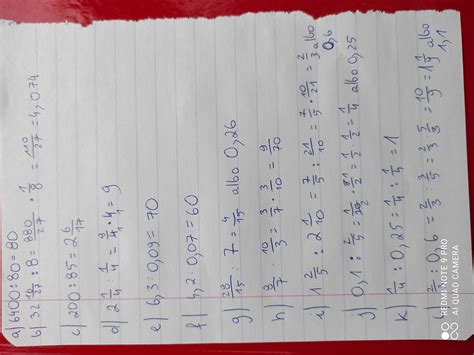 a) 6400:80=80
b) 32 16/27 : 8 = 880/27 · 1/8 = 110/27 = 4,074
c) 200:85=2 6/17
d) 2 1/4 : 1/4 = 9/4 · 4 = 9
e) 6,3:0,09=70
f) 4,2:0,07=60
g) 28/15 : 7 = 4/15 albo 0,26
h) 3/7 : 10/3 = 3/7 · 3/10 = 9/70
i) 1 2/5 : 2 1/10 = 7/5 : 21/10 = 7/5 · 10/21 = 2/3 albo 0,6
j) 0,1 : 2/5 = 1/10 · 5/2 = 1/2 · 1/2 = 1/4 albo 0,25
k) 1/4 : 0,25 = 1/4 : 1/4 = 1
2/3 : 0,6 = 2/3 : 3/5 = 2/3 · 5/3 = 10/9 = 1 1/9 albo 1,1
REDMI NOTE 9 PRO
AI QUAD CAMERA